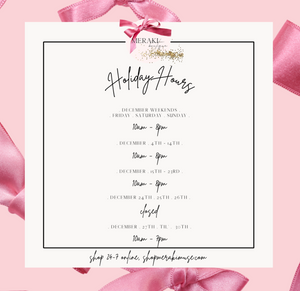 MERAKI
Holiday Hours
. DECEMBER WEEKENDS .
FRIDAY . SATURDAY . SUNDAY .
10am - 8pm
. DECEMBER .
10am - 8pm
. DECEMBER .
10am - 8pm
DECEMBER 24TH . 25TH . 26TH .
closed
. DECEMBER . 27TH .
10am - 7pm
shop 24-7 online, shopmerakimuse.com